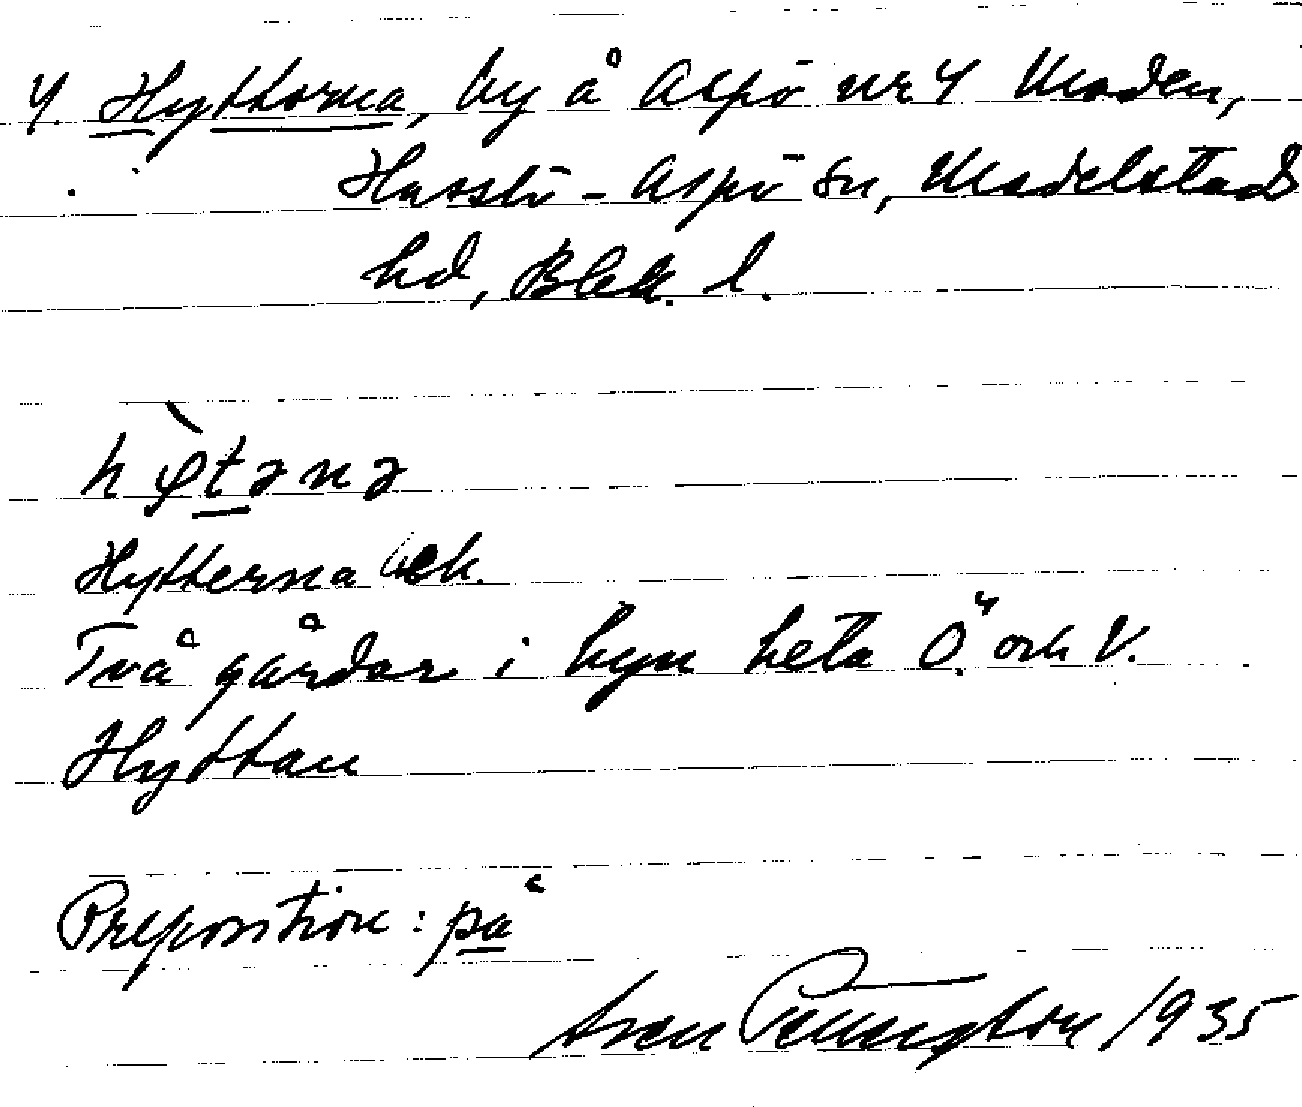 4. Hyttorna, by å Aspö nr 4 Moden,
Hasslö-Aspö sn, Medelstad
hd, Blek. l.
Hytterna ek.
Två gårdar i byn heta Ö. och V.
Hyttan
Preposition: på
Sven 1935